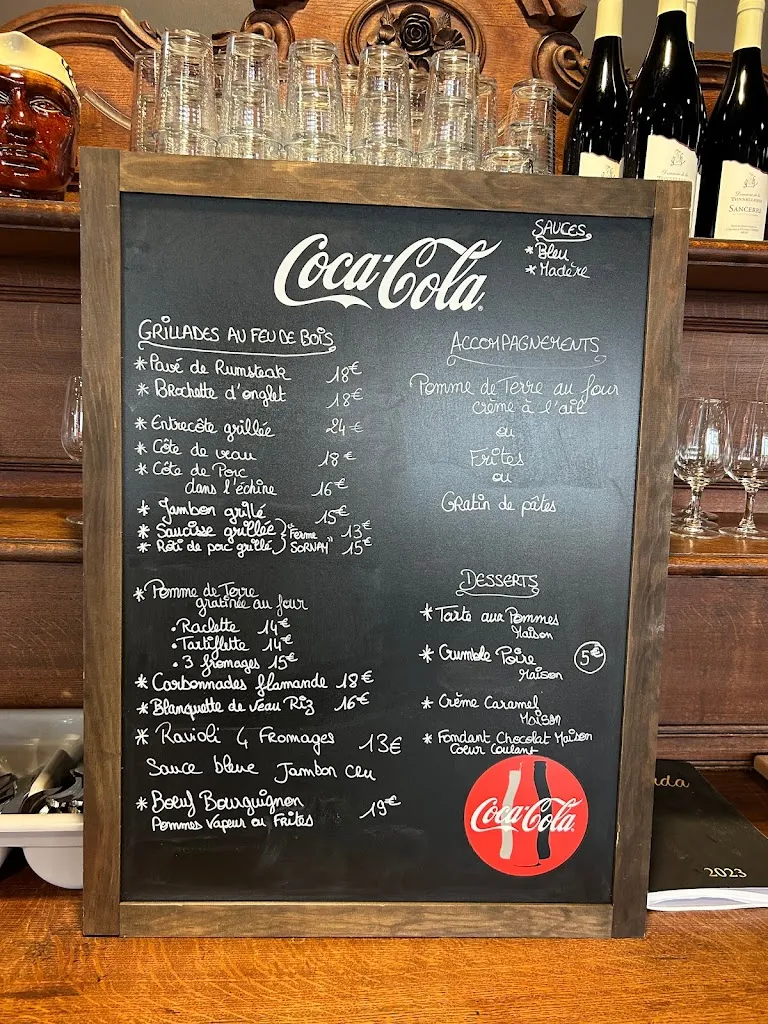 SANCERRE
Coca-Cola
SAUCES
* Bleu
* Madère
GRILLADES AU FEU DE BOIS
* Pavé de Rumsteak 18€
* Brochette d'onglet 18€
* Entrecôte grillée 24€
* Côte de veau 18€
* Côte de Porc
dans l'échine 16€
* Jambon grillé 15€
* Saucisse grillée } "Ferme 13€
* Rôti de porc grillé } SORNAY" 15€
* Pomme de Terre
gratinée au four
• Raclette 14€
• Tartiflette 14€
• 3 fromages 15€
* Carbonnades flamande 18€
* Blanquette de veau Riz 16€
* Ravioli 4 Fromages 13€
Sauce bleue Jambon cru
* Boeuf Bourguignon 19€
Pommes Vapeur ou Frites
ACCOMPAGNEMENTS
Pomme de Terre au four
crème à l'ail
ou
Frites
ou
Gratin de pâtes
DESSERTS
* Tarte aux Pommes
Maison
* Crumble Poire 5€
Maison
* Crème Caramel
Maison
* Fondant Chocolat Maison
Coeur Coulant
Coca-Cola
2023